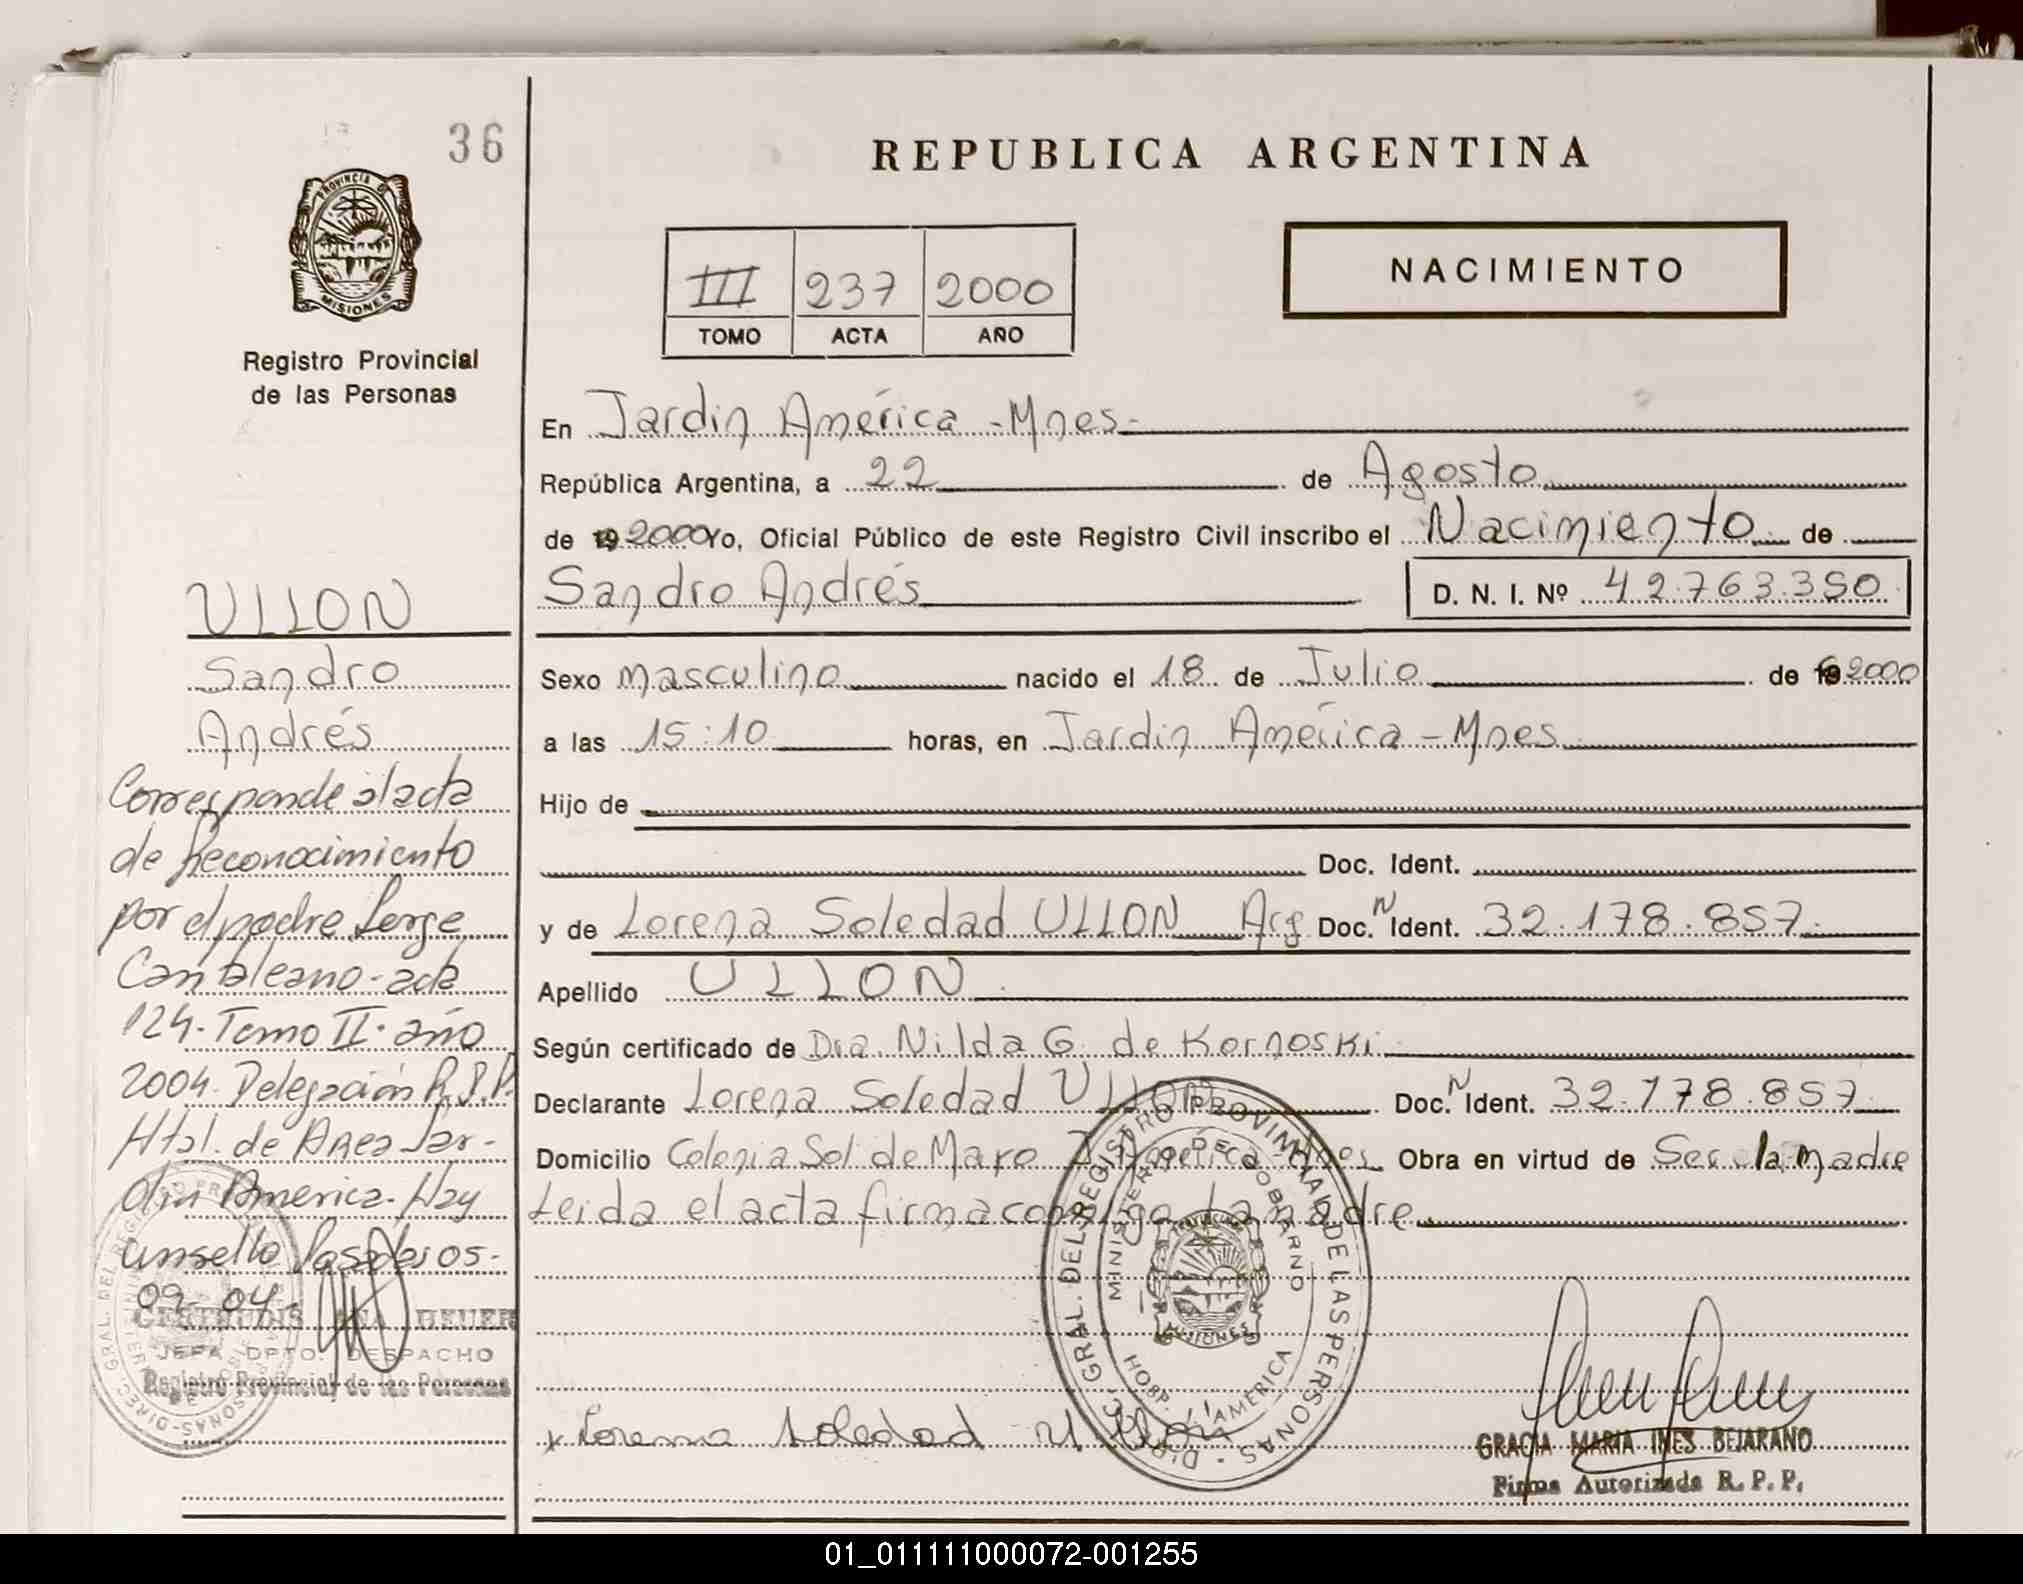 36
PROVINCIA DE
MISIONES
Registro Provincial
de las Personas
REPUBLICA ARGENTINA
III 237 2000
TOMO ACTA AÑO
NACIMIENTO
En Jardin América - Mnes -
República Argentina, a 22 de Agosto
de 19 2000 Yo, Oficial Público de este Registro Civil inscribo el Nacimiento de
Sandro Andrés D. N. I. Nº 42.763.350
Sexo masculino nacido el 18 de Julio de 19 2000
a las 15:10 horas, en Jardin América - Mnes
Hijo de
Doc. Ident.
y de Lorena Soledad ULLON Arg Doc. N Ident. 32.178.857.
Apellido ULLON
Según certificado de Dra. Nilda G. de Kornoski
Declarante Lorena Soledad ULLON Doc. N Ident. 32.178.857
Domicilio Colonia Sol de Mayo J. América - Mnes Obra en virtud de Ser la madre
Leida el acta firma conmigo La madre
x Lorena Soledad Ullon
DIREC. GRAL. DEL REGISTRO PROVINCIAL DE LAS PERSONAS
MINISTERIO DE GOBIERNO
PROVINCIA DE
MISIONES
HOSP. J. AMERICA
GRACIA MARIA INES BEJARANO
Firma Autorizada R. P. P.
ULLON
Sandro
Andrés
Corresponde al acta
de Reconocimiento
por el padre Jorge
acta
124. Tomo II. año
2004. Delegación R.P.P.
Htal. de Area Jar-
din America. Hay
un sello Posadas 05-
09-04.
GERTRUDIS ANA HEUER
JEFA DPTO. DESPACHO
Registro Provincial de las Personas
01_011111000072-001255